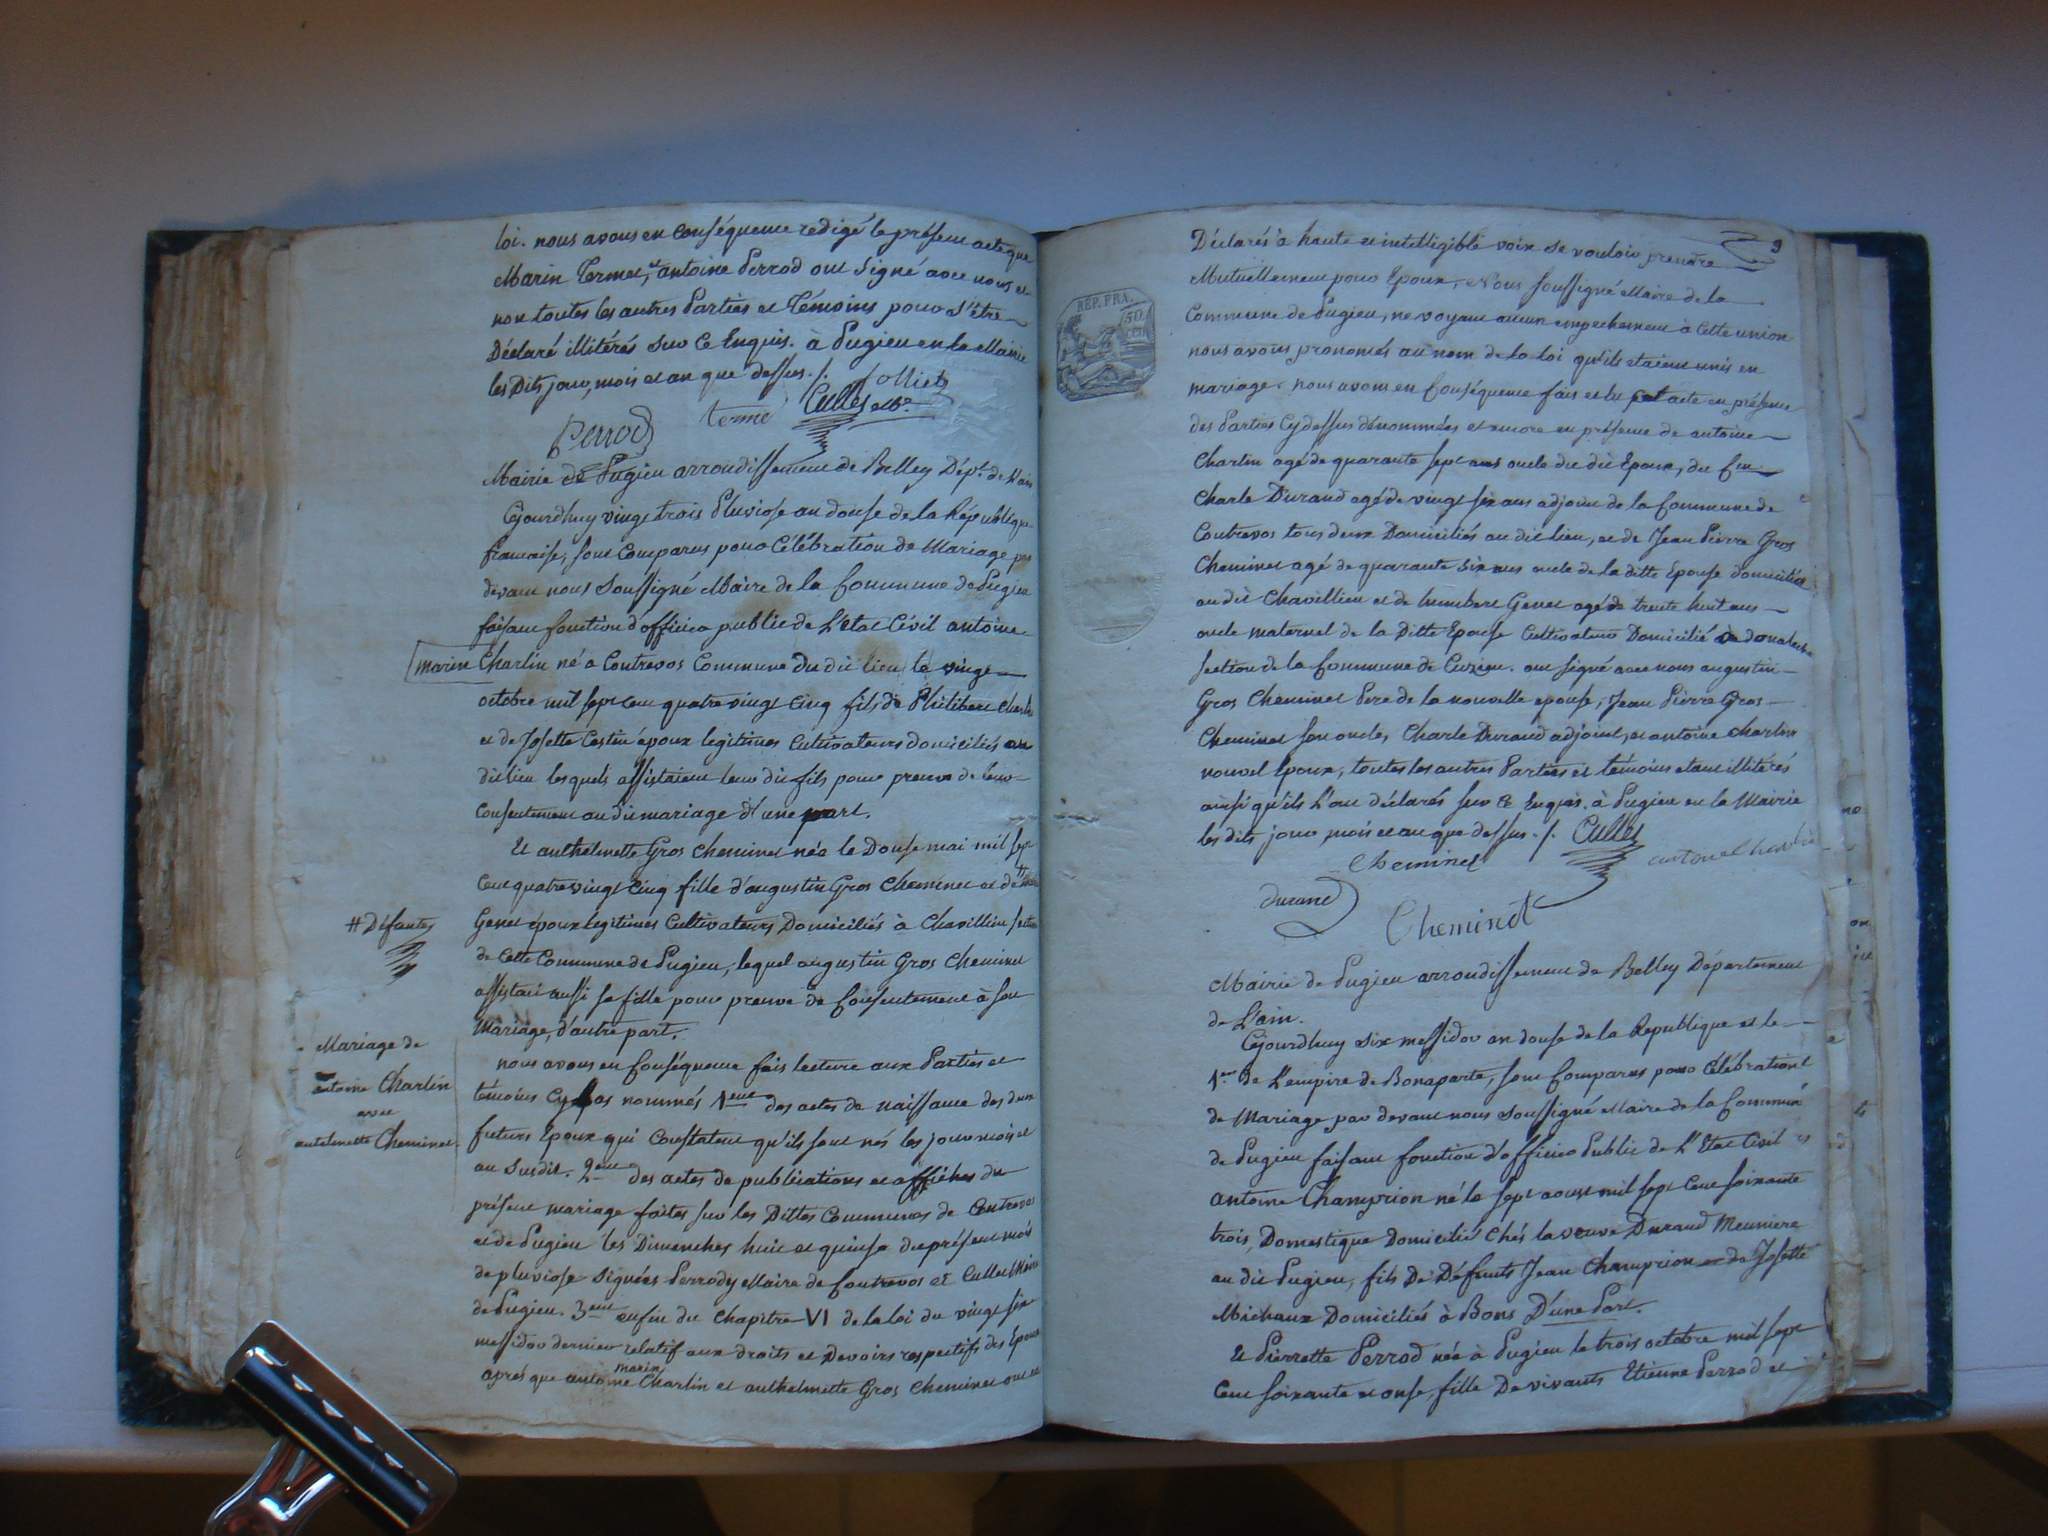 loi. nous avons en conséquence redigé le présent acte que
Marin Termet, et antoine Perrod ont signé avec nous et
non toutes les autres Parties et Témoins pour s'être
Déclaré illitérés sur ce Enquis. à Pugieu en la Mairie
les Dits jour, mois et an que dessus ./.
Perrod terme Culles
Mairie de Pugieu arrondissement de Belley Dépt. de L'ain
Cejourdhuy vingt trois Pluviose an douse de la République
francaise, sont Comparus pour Célébration de Mariage par
devant nous soussigné Maire de la Commune de Pugieu
faisant fonction d'officier public de L'etat Civil antoine
marin Charlin né a Contrevos Commune du dit lieu le vingt
octobre mil sept cent quatre vingt cinq fils de Philibert Charlin
et de Josette Cestin époux legitimes Cultivateurs domiciliés au
dit lieu lesquels assistaient leur dit fils pour preuve de leur
Consentement au dit mariage d'une part.
Et anthelmette Gros Cheminet née le Douse mai mil sept
Cent quatre vingt Cinq fille d'augustin Gros Cheminet et de #
Genet époux legitimes Cultivateurs Domiciliés à Chavillieu section
# Défante
de Cette Commune de Pugieu, lequel augustin Gros Cheminet
assistait aussi sa fille pour preuve de Consentement à son
Mariage, d'autre part.
Mariage de
antoine Charlin
avec
antelmette Cheminet.
nous avons en Conséquence fait lecture aux Parties et
témoins Cy bas nommés 1ement des actes de naissance des deux
futurs Epoux qui Constatent qu'ils sont nés les jour mois et
an susdit. 2eme des actes de publications et affiches du
présent mariage faites sur les Dittes Communes de Contrevos
et de Pugieu les Dimanches huit et quinse du présent mois
de pluviose signées Perrody Maire de Contrevos et Culles Maire
de Pugieu. 3eme enfin du Chapitre VI de la loi du vingt six
messidor dernier relatif aux droits et Devoirs respectifs des Epoux
après que antoine marin Charlin et anthelmette Gros Cheminet ont et
9
Déclarés à haute et intelligible voix se vouloir prendre
Mutuellement pour Epoux, Nous soussigné Maire de la
REP. FRA.
50
CEN
Commune de Pugieu, ne voyant aucun empechement à Cette union
nous avons prononcés au nom de la loi qu'ils etaient unis en
mariage. nous avons en Conséquence fait et lu cet acte en présence
des Parties Cydessus dénommées et encore en présence de antoine
Charlin agé de quarante sept ans oncle du dit Epoux, du Cen.
Charle Durand agé de vingt six ans adjoint de la Commune de
Contrevos tous deux Domiciliés au dit lieu, et de Jean Pierre Gros
Cheminet agé de quarante six ans oncle de la ditte Epouse domicilié
au dit Chavillieu et de humbert Genet agé de trente huit ans
oncle maternel de la Ditte Epouse Cultivateur Domicilié
section de la Commune de Cuzieu. ont signé avec nous augustin
Gros Cheminet Pere de la nouvelle epouse, Jean Pierre Gros
Cheminet son oncle, Charle Durand adjoint, et antoine Charlin
nouvel Epoux, toutes les autres Parties et témoins etant illitérés
ainsi qu'ils L'ont déclarés sur Ce Enquis. à Pugieu en la Mairie
les dits jour mois et an que dessus ./. Culles
Cheminet antoine charlin
durand
Cheminet
Mairie de Pugieu arrondissement de Belley Département
de L'ain.
Cejourdhuy six messidor an douse de la Republique et le
1er. De L'empire de Bonaparte, sont Comparus pour Célébration
de Mariage par devant nous soussigné Maire de la Commune
de Pugieu faisant fonction d'officier Public de L'Etat Civil
antoine Champrion né le sept aoust mil sept Cent soixante
trois, Domestique Domicilié Chés la veuve Durand Meuniere
au dit Pugieu, fils De Défunts Jean Champrion et de Josette
Michaux Domiciliés à Bons D'une Part.
Et Pierrette Perrod née à Pugieu le trois octobre mil sept
Cent soixante et onse, fille De vivants Etienne Perrod et